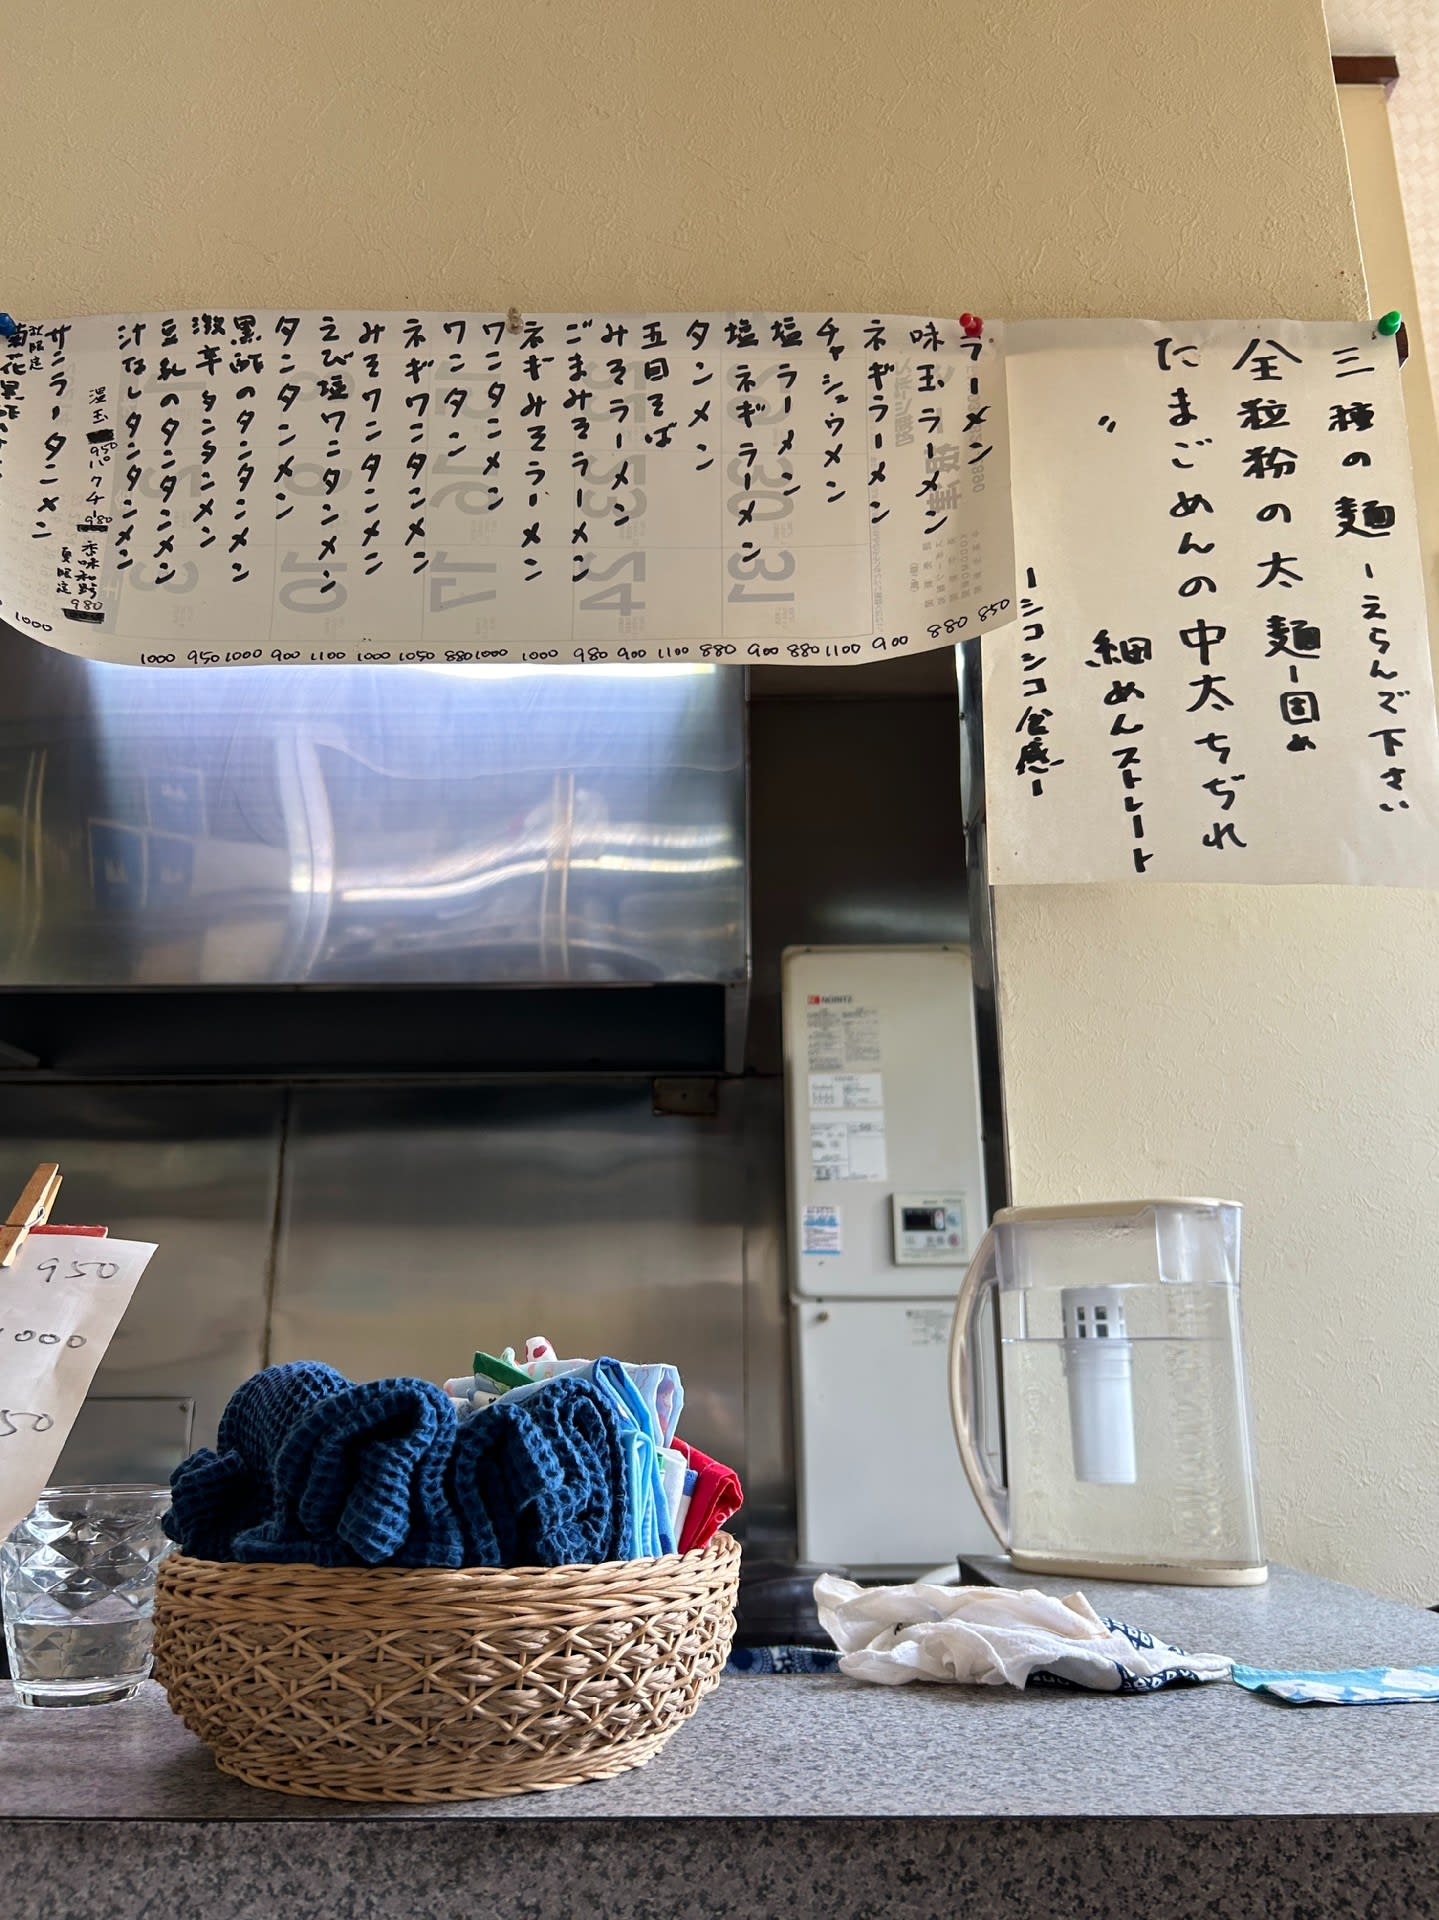 三種の麺ーえらんで下さい
全粒粉の太麺ー固め
たまごめんの中太ちぢれ
〃 細めんストレート
ーシコシコ食感ー
ラーメン 850
味玉ラーメン 880
ネギラーメン 900
チャシュウメン 1100
塩ラーメン 880
塩ネギラーメン 900
タンメン 880
五目そば 1100
みそラーメン 900
ごまみそラーメン 980
ネギみそラーメン 1000
ワンタンメン 1000
ワンタン 880
ネギワンタンメン 1050
みそワンタンメン 1000
えび塩ワンタンメン 1100
タンタンメン 900
黒酢のタンタンメン 1000
激辛タンタンメン 950
豆乳のタンタンメン 1000
汁なしタンタンメン
温玉 950 パクチー 980 香味和え 980
夏限定
サンラータンメン 1000
限定
菊花黒酢
NORITZ
950
1000
50